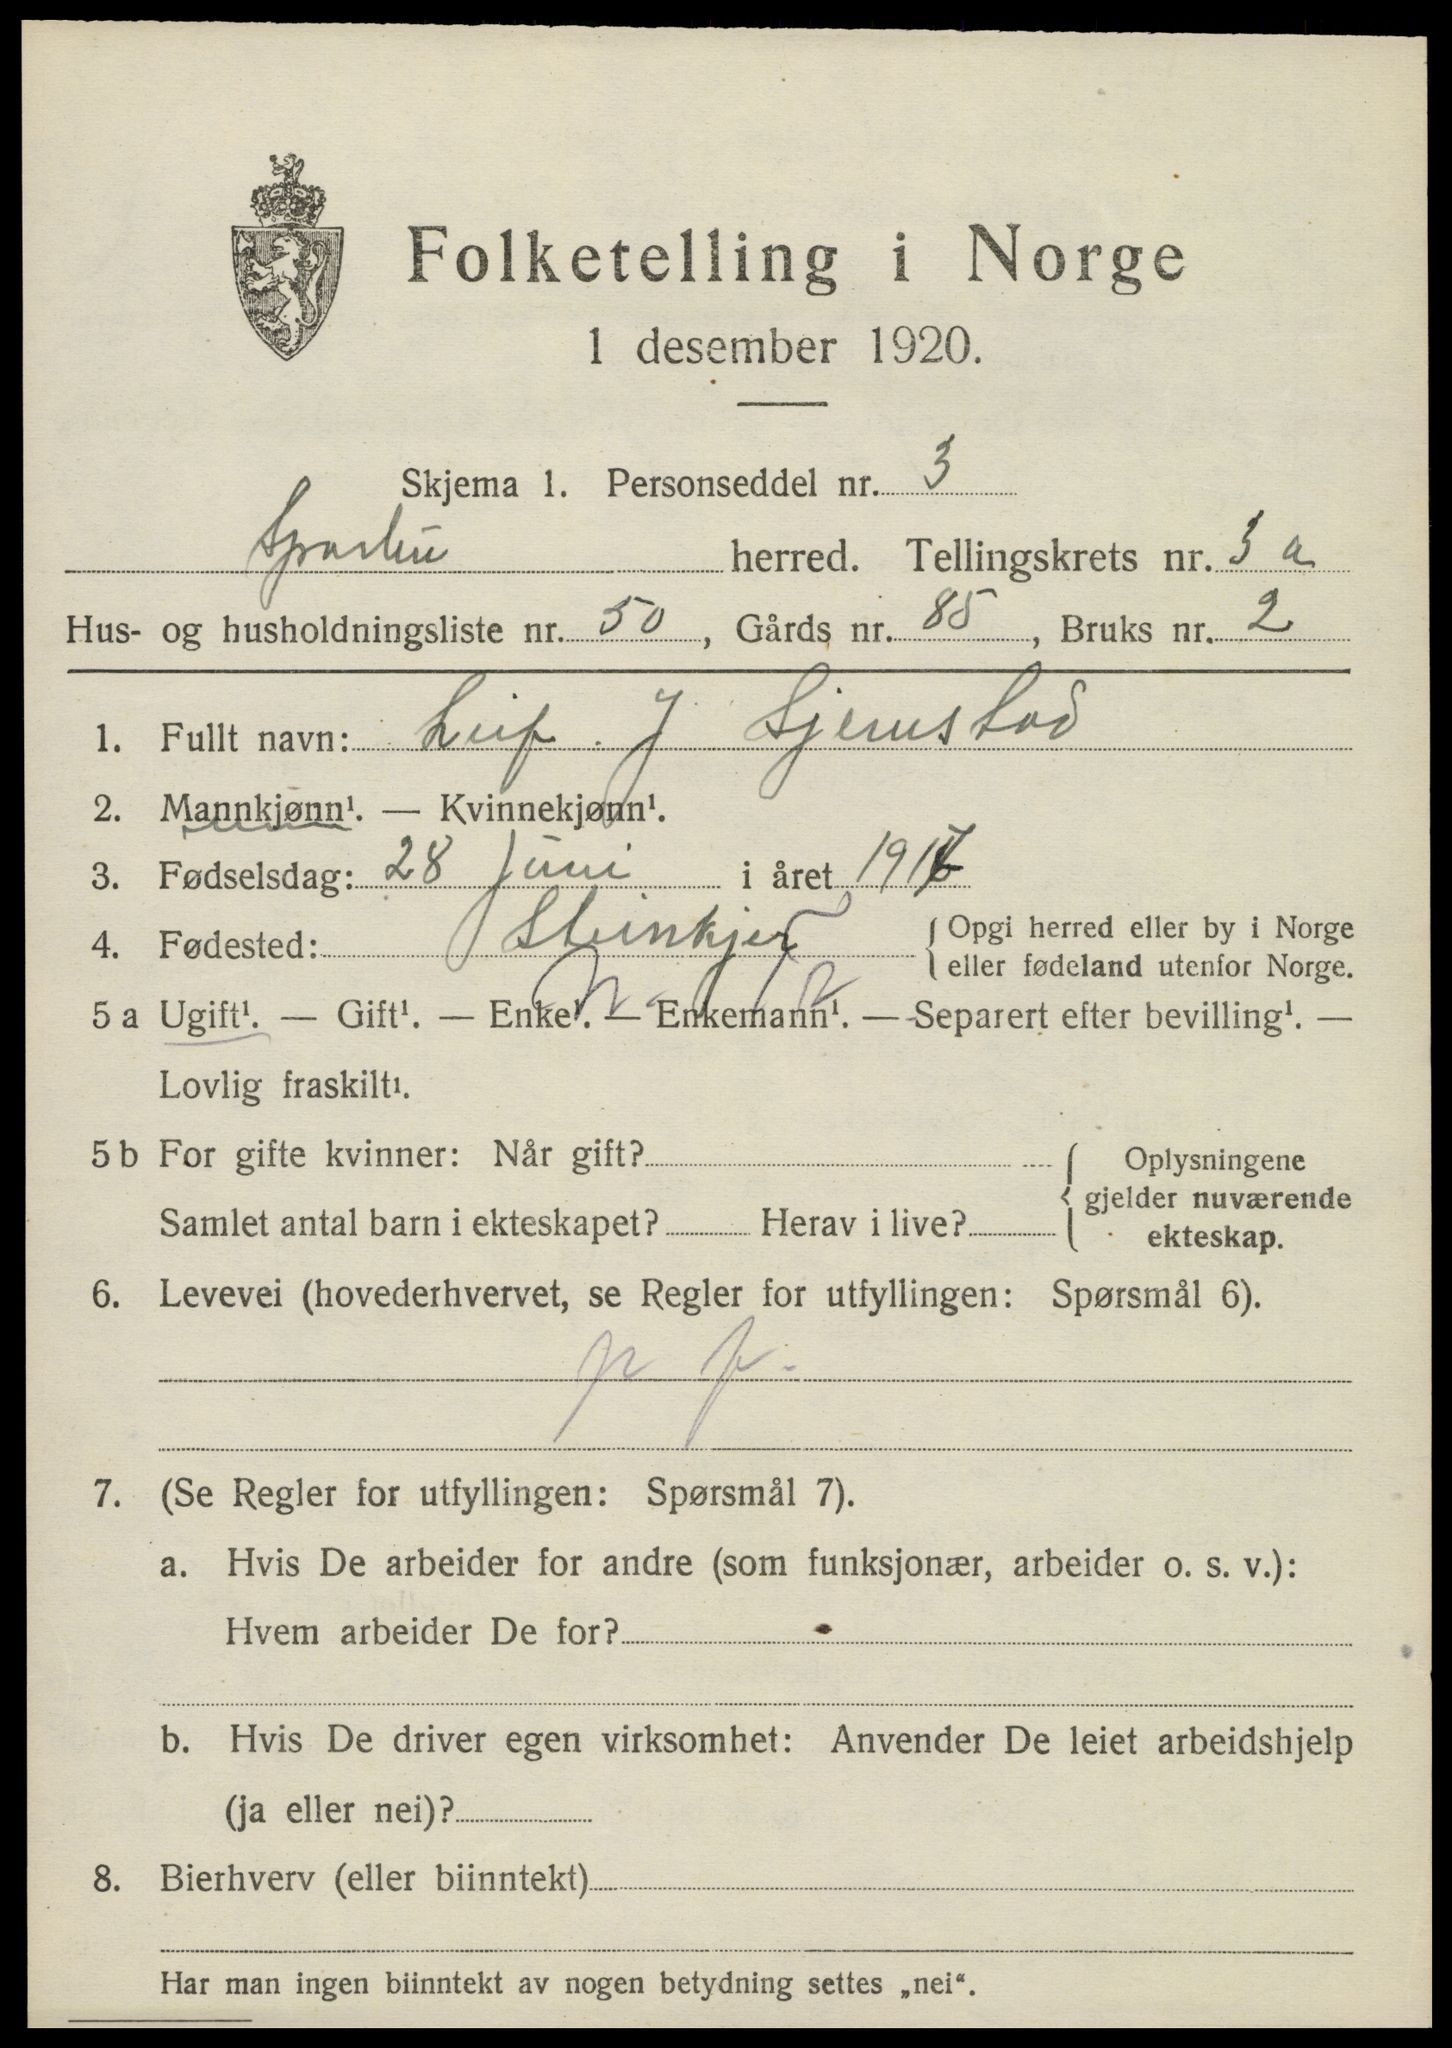 Folketelling i Norge
1 desember 1920.
Skjema 1. Personseddel nr. 3
Sparbu herred. Tellingskrets nr. 3 a
Hus- og husholdningsliste nr. 50, Gårds nr. 85, Bruks nr. 2
1. Fullt navn: Leif J Gjermstad
2. Mannkjønn¹. — Kvinnekjønn¹.
3. Fødselsdag: 28 Juni i året 1917
4. Fødested: Steinkjer {Opgi herred eller by i Norge
eller fødeland utenfor Norge.
5 a Ugift¹. — Gift¹. — Enke¹. — Enkemann¹. — Separert efter bevilling¹. —
Lovlig fraskilt¹.
5 b For gifte kvinner: Når gift? { Oplysningene
gjelder nuværende
Samlet antal barn i ekteskapet? Herav i live?
ekteskap.
6. Levevei (hovederhvervet, se Regler for utfyllingen: Spørsmål 6).
7. (Se Regler for utfyllingen: Spørsmål 7).
a. Hvis De arbeider for andre (som funksjonær, arbeider o. s. v.):
Hvem arbeider De for?
b. Hvis De driver egen virksomhet: Anvender De leiet arbeidshjelp
(ja eller nei)?
8. Bierhverv (eller biinntekt)
Har man ingen biinntekt av nogen betydning settes „nei“.